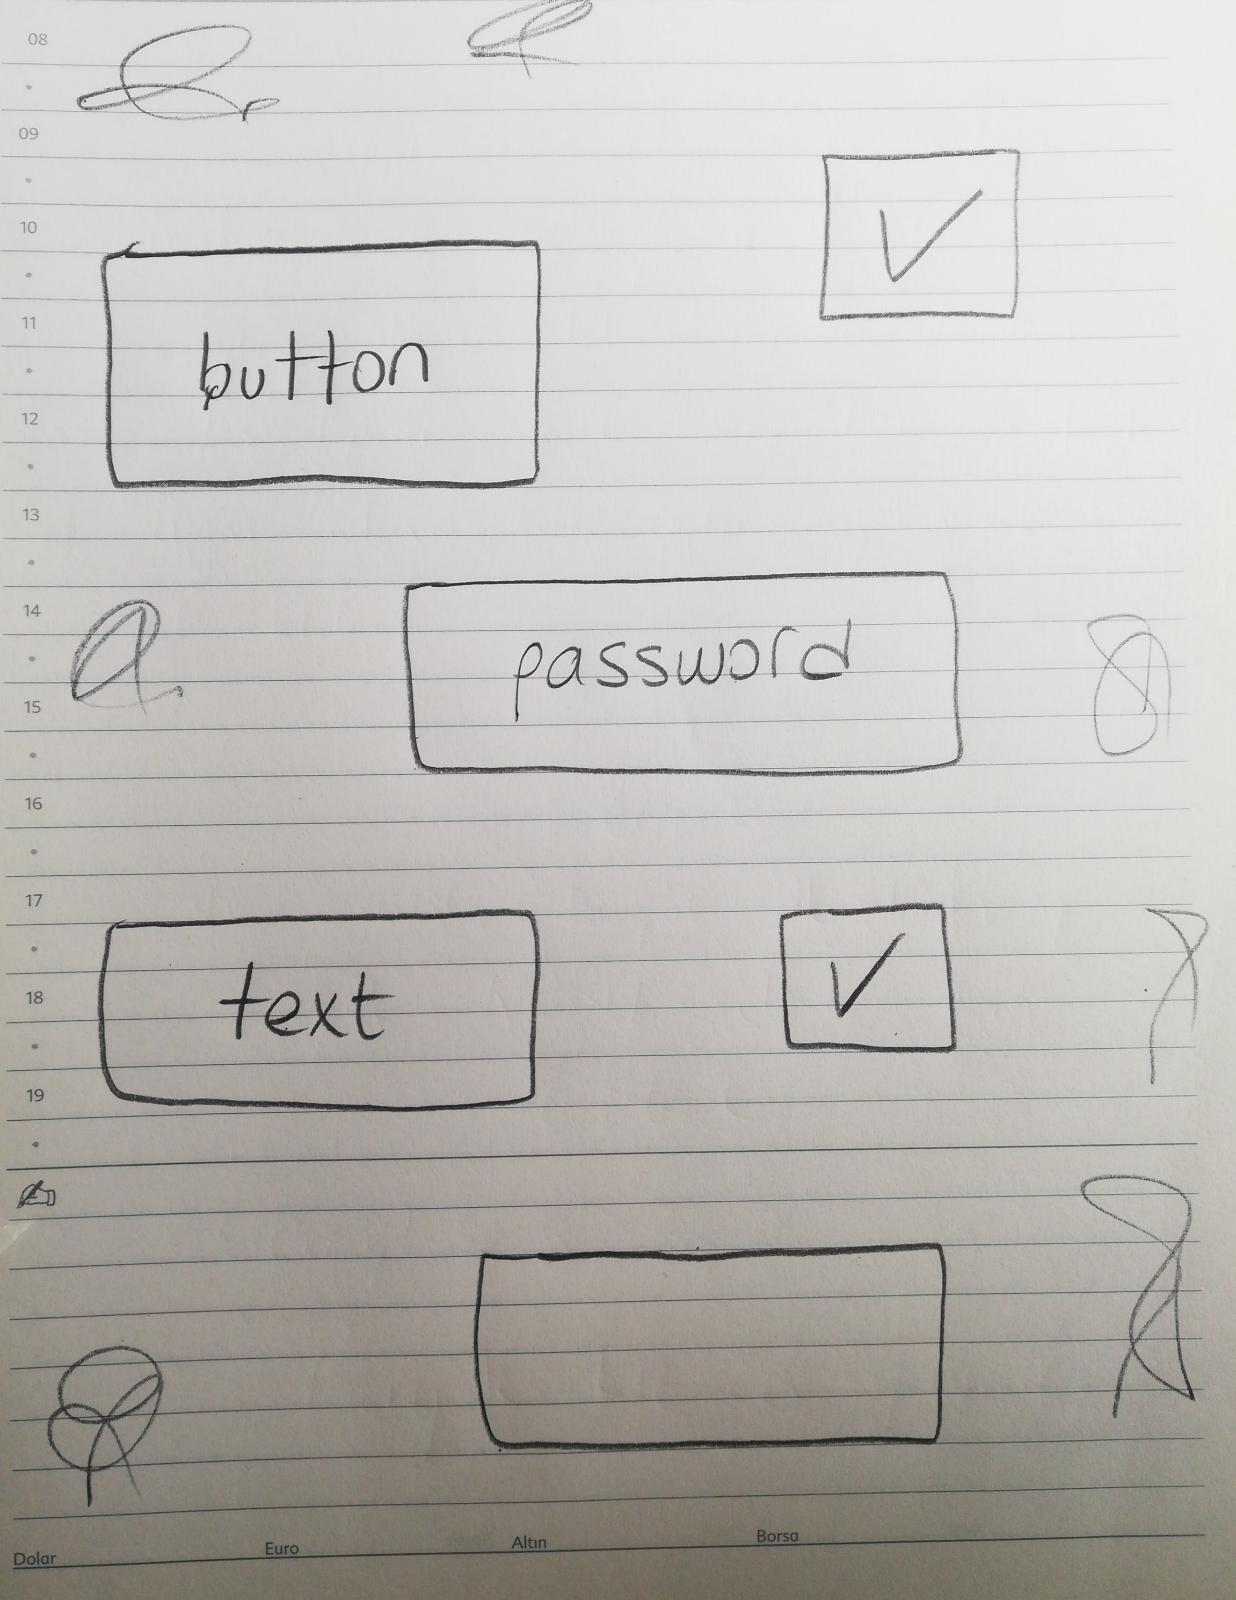 08
09
10
11
button
12
13
14
password
15
16
17
18
text
19
Dolar Euro Altın Borsa